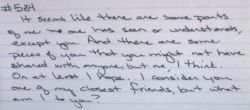 #584
It seems like there are some parts
of me no one has seen or understands,
except you. And there are some
pieces of you that you might not have
shared with anyone, but me, I think.
Or at least I hope. I consider you
one of my closest friends, but what
am I to you?